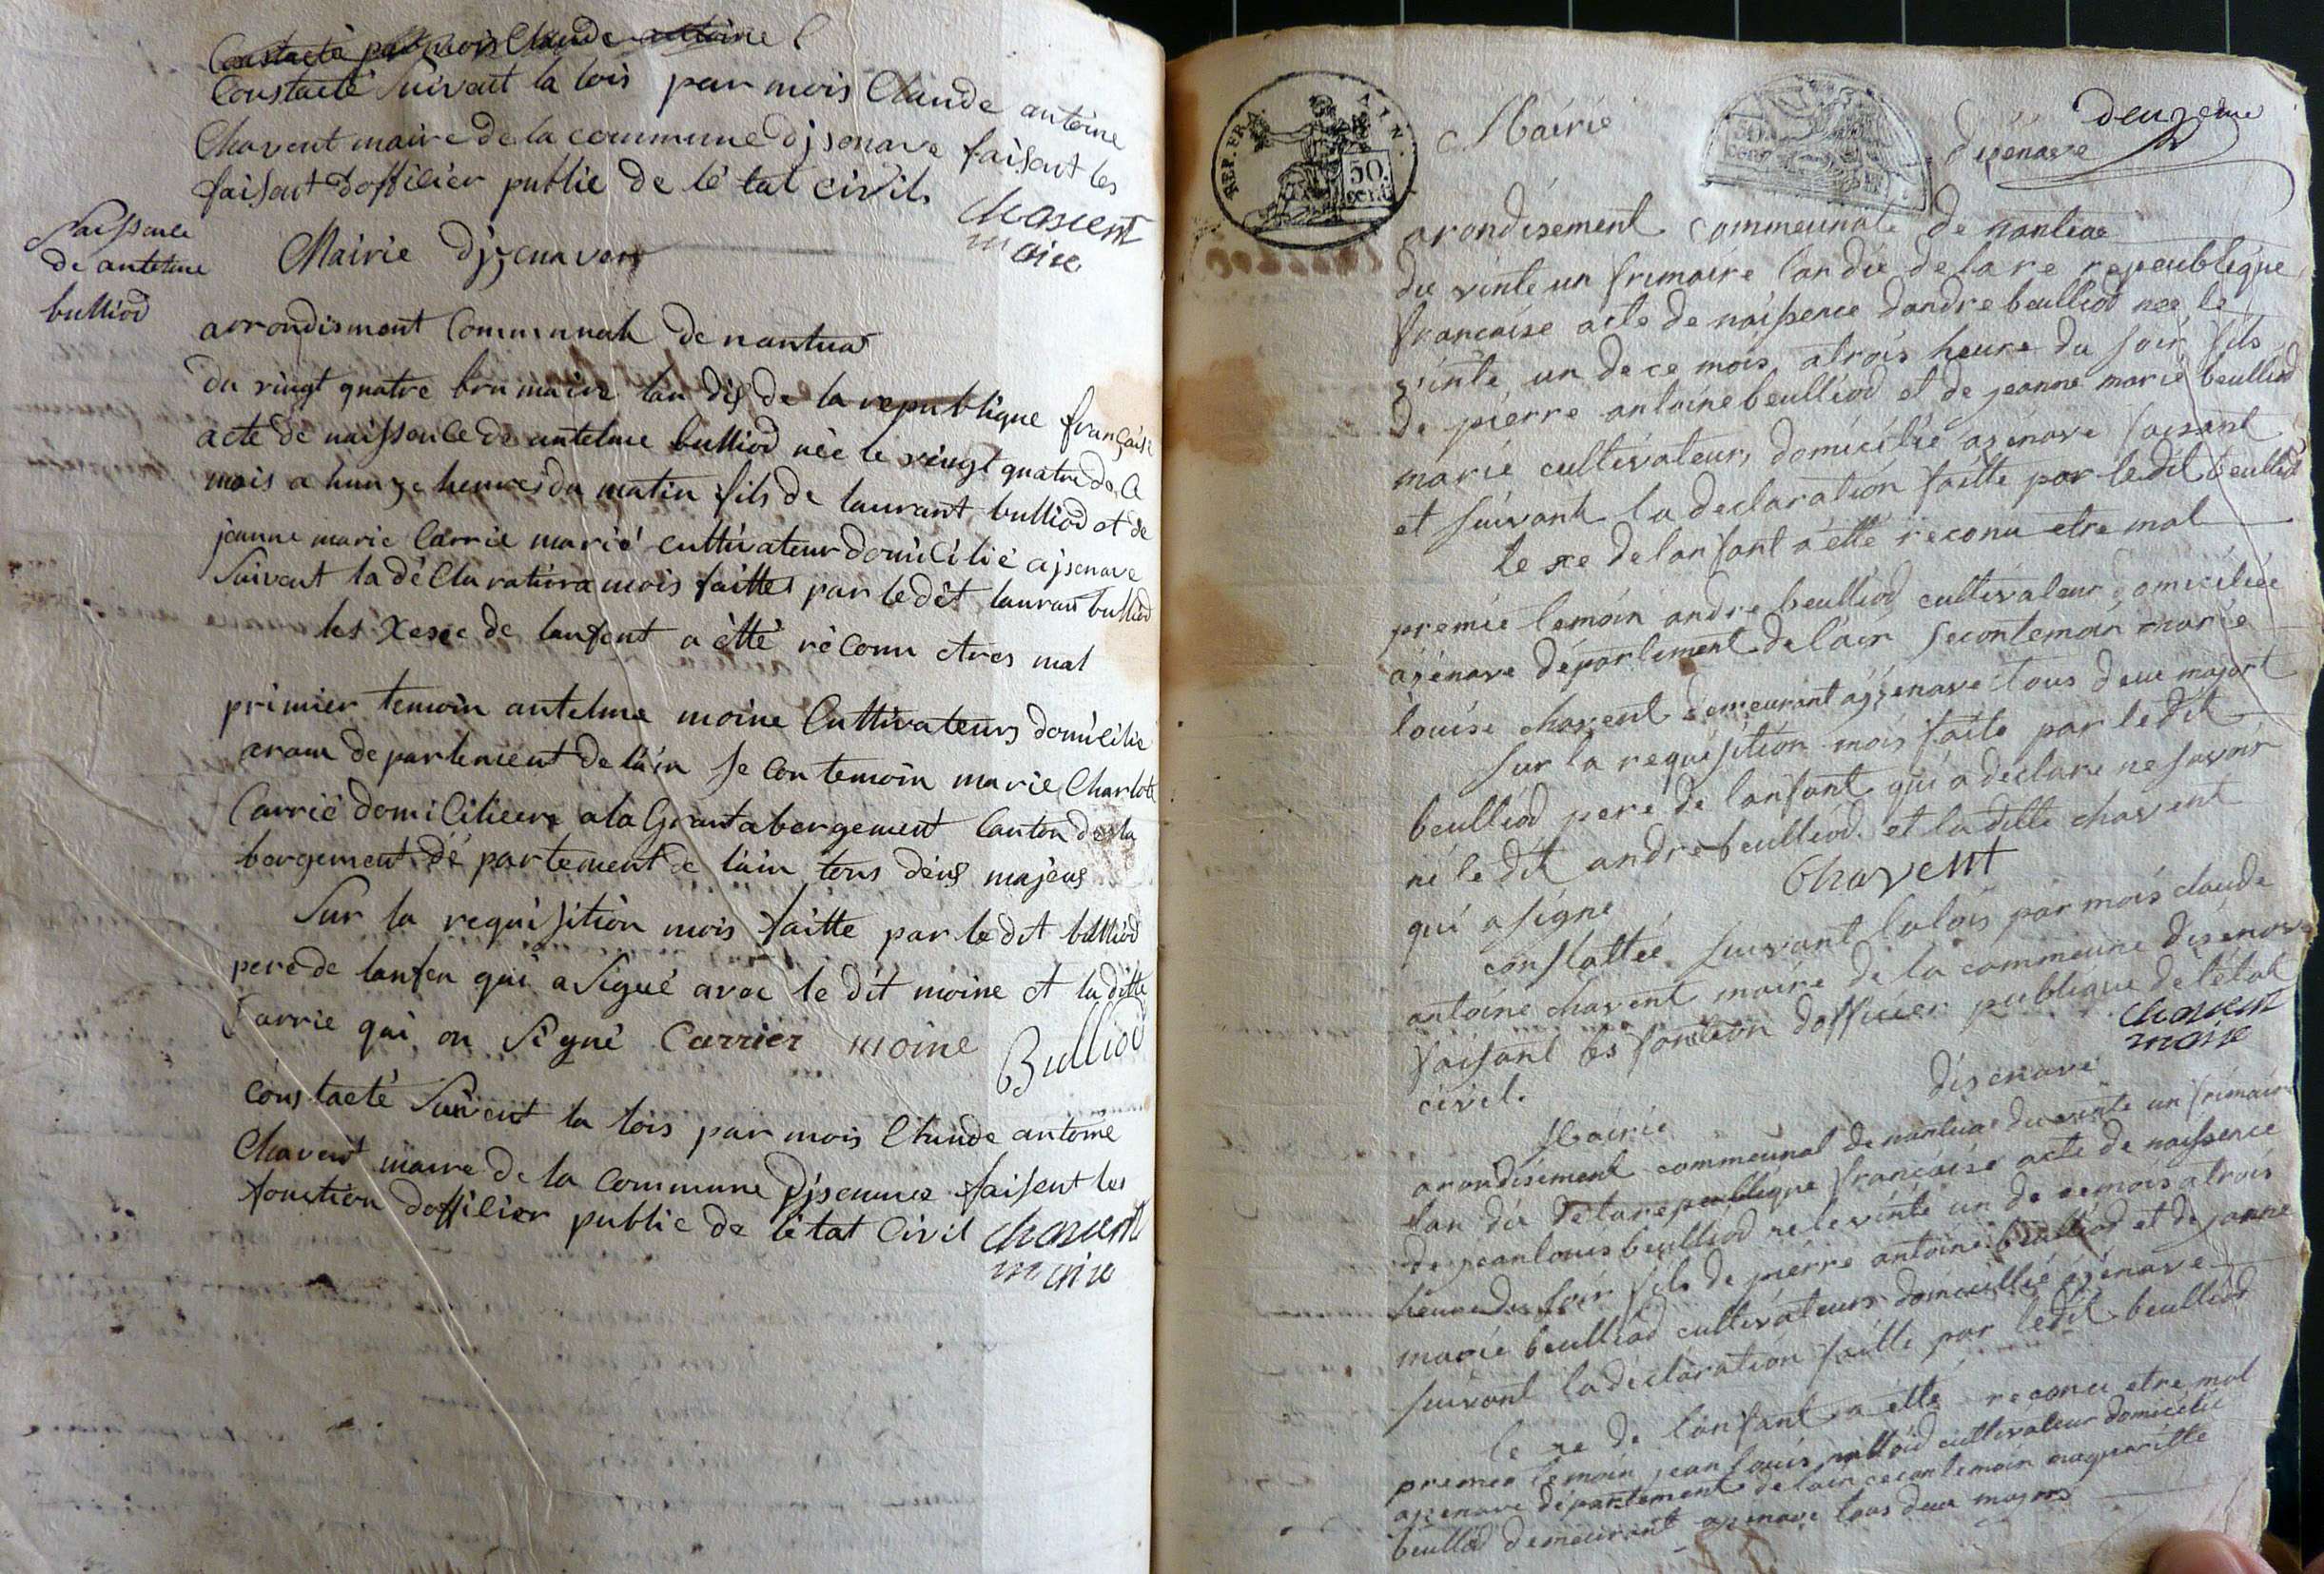 Constacté par mois Claude antoine C
Constacté suivent la lois par mois Claude antoine
Chavent maire de la commune djsenave faisent les
faisent dofficier public de lé tat civils
Chavent
maire
Naissence
de antelme
bulliod
Mairie djzenaven
arrondisment Communale de nantua
du vingt quatre brumaire lan dix de la republique française
acte de naissence de antelme bulliod née le vingt quatre de ce
mois a hunze heures du matin fils de laurant bulliod et de
jeanne marie Carrie marié cultivateur domicilié ajsenave
Suivent la déClaration a mois faitte par ledit laurant bulliod
les Xesee de lanfent a étté réconu etres mal
primier temoin antelme moine Cultivateurs domicilié
departement de lain se con temoin marie Charlote
Carrié domicilieere a la Grant abergement Canton de la
bergement dé partement de lain tous deus majeus
Sur la requisition mois faitte par le dit bulliod
pere de lanfen qui a Signé avec le dit moine et la ditte
Carrie qui on Signé Carrier moine
Bulliod
constacté Suivent la lois par mois Claude antoine
Chavent maire de la Commune Djsenave faisent les
fonction dofficier public de létat Civil
Chavent
maire
REP. FRA.
50.
cent.
Mairie
disenave
deuzeme
arondisement commeunale de nantua
du vinte un frimaire lan dix de la re repeublique
francaise acte de naissence dandre beulliod nee le
vinte un de ce mois a trois heure du soir fils
de pierre antoine beulliod et de jeanne marie beulliod
marié cultivateurs domicilié azenave faisant
et suivant la declaration faitte par ledit beulliod
le xe de lanfant a etté reconu etre mal
premié temoin andre beulliod cultivateur domiciliee
azenave département de lain secon temoin marie
louise chavent demeurant azenave tous deux majort
sur la requisition mois faite par ledit
beulliod pere de lanfant qui a declare ne savoir
ni le dit andre beulliod et la ditte chavent
qui a signe
Chavent
constattée suivant la lois par mois claude
antoine chavent maire de la commeune disenave
faisant les fonction dofficier publique de létat
civil.
chavent
maire
Mairie disenave
arondisement commeunal de nantua du vinte un frimaire
lan dix de la repeublique francaise acte de naissence
de jean louis beulliod né le vinte un de ce mois a trois
heure du soir fils de pierre antoine beulliod et de janne
marie beulliod cultivateurs domicillié azenave
suivant la déclaration faitte par ledit beulliod
le xe de lanfant a etté reconu etre mal
premier temoin jean louis cultivateur domicilié
azenave département de lain cecon temoin margueritte
beulliod demeurant azenave tous deux majors